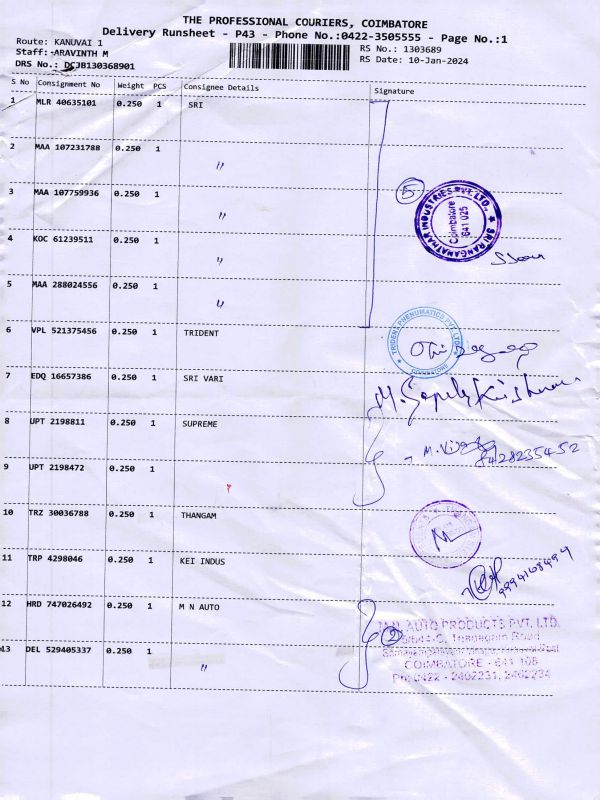 THE PROFESSIONAL COURIERS, COIMBATORE
Delivery Runsheet - P43 - Phone No.:0422-3505555 - Page No.:1
Route: KANUVAI 1
Staff: ARAVINTH M
DRS No.: DCJB130368901
RS No.: 1303689
RS Date: 10-Jan-2024
S No Consignment No Weight PCS Consignee Details Signature
1 MLR 40635101 0.250 1 SRI
2 MAA 107231788 0.250 1 〃
3 MAA 107759936 0.250 1 〃
5
SRI RANGANATHAR INDUSTRIES PVT. LTD.,
Coimbatore
641 025
4 KOC 61239511 0.250 1 〃
5 MAA 288024556 0.250 1 〃
6 VPL 521375456 0.250 1 TRIDENT
TRIDENT PNEUMATICS PVT. LTD.
COIMBATORE
7 EDQ 16657386 0.250 1 SRI VARI
M. Gopala Krishnan
8 UPT 2198811 0.250 1 SUPREME
8428235452
9 UPT 2198472 0.250 1
10 TRZ 30036788 0.250 1 THANGAM
11 TRP 4298046 0.250 1 KEI INDUS
9994168494
12 HRD 747026492 0.250 1 M N AUTO
2
M.N. AUTO PRODUCTS PVT. LTD.
13 DEL 529405337 0.250 1 〃
COIMBATORE - 641 108
Ph: 0422 - 2402231, 2402234